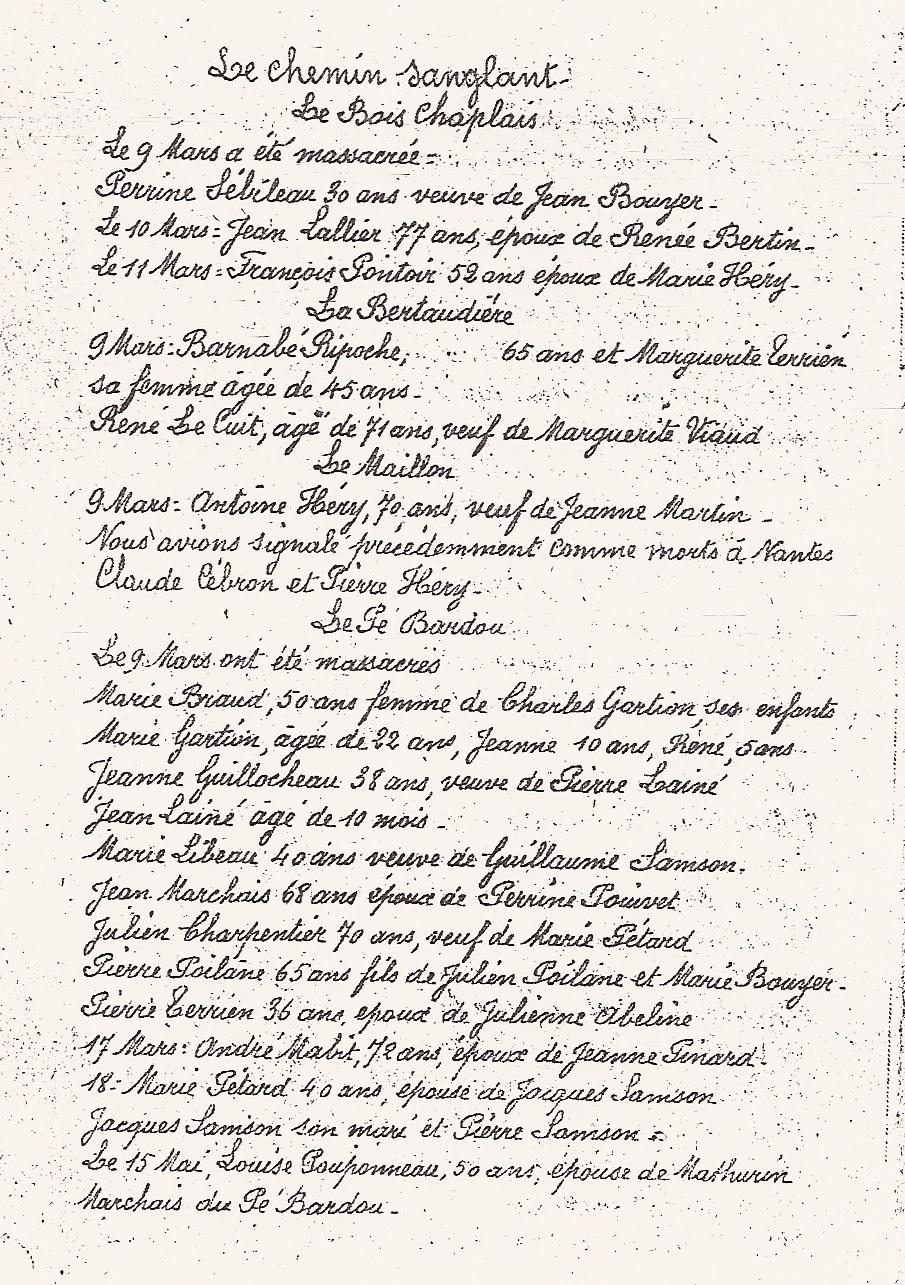 Le chemin sanglant-
Le Bois Chaplais
Le 9 Mars a été massacrée -
Perrine Sébileau 30 ans veuve de Jean Bouyer -
Le 10 Mars: Jean Lallier 77 ans, époux de Renée Bertin -
Le 11 Mars: François Pontoir 52 ans époux de Marie Héry -
La Bertaudière
9 Mars: Barnabé Ripoche, 65 ans et Marguerite Terrien
sa femme âgée de 45 ans -
René Le Cuit, âgé de 71 ans, veuf de Marguerite Viaud
Le Maillon
9 Mars: Antoine Héry, 70 ans, veuf de Jeanne Martin -
Nous avions signalé précédemment comme morts à Nantes
Claude Cébron et Pierre Héry -
Le Pé Bardou
Le 9 Mars ont été massacrés
Marie Braud, 50 ans femme de Charles Gartion, ses enfants
Marie Gartion, âgée de 22 ans, Jeanne 10 ans, René, 5 ans
Jeanne Guillocheau 38 ans, veuve de Pierre Lainé
Jean Lainé âgé de 10 mois -
Marie Libeau 40 ans veuve de Guillaume Samson.
Jean Marchais 68 ans époux de Perrine Poiuvet
Julien Charpentier 70 ans, veuf de Marie Pétard
Pierre Poilâne 65 ans fils de Julien Poilane et Marie Bouyer -
Pierre Terrien 36 ans, époux de Julienne Abeline
17 Mars: André Mabit, 72 ans, époux de Jeanne Pinard -
18: Marie Pétard 40 ans, épouse de Jacques Samson
Jacques Samson son mari et Pierre Samson -
Le 15 Mai, Louise Pouponneau, 50 ans, épouse de Mathurin
Marchais du Pé Bardou -